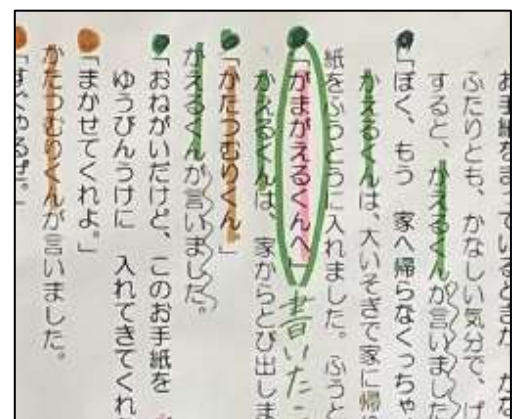 お手紙をまっているときが
ふたりとも、かなしい気分で、げ
すると、かえるくんが言いました
「ぼく、もう 家へ帰らなくっちゃ
かえるくんは、大いそぎで家に帰
紙をふうとうに入れました。ふうと
「がまがえるくんへ」書いたこ
かえるくんは、家からとび出しま
「かたつむりくん」
かえるくんが言いました。
「おねがいだけど、このお手紙を
ゆうびんうけに 入れてきてくれ
「まかせてくれよ。」
かたつむりくんが言いました。
「すぐやるぜ。」